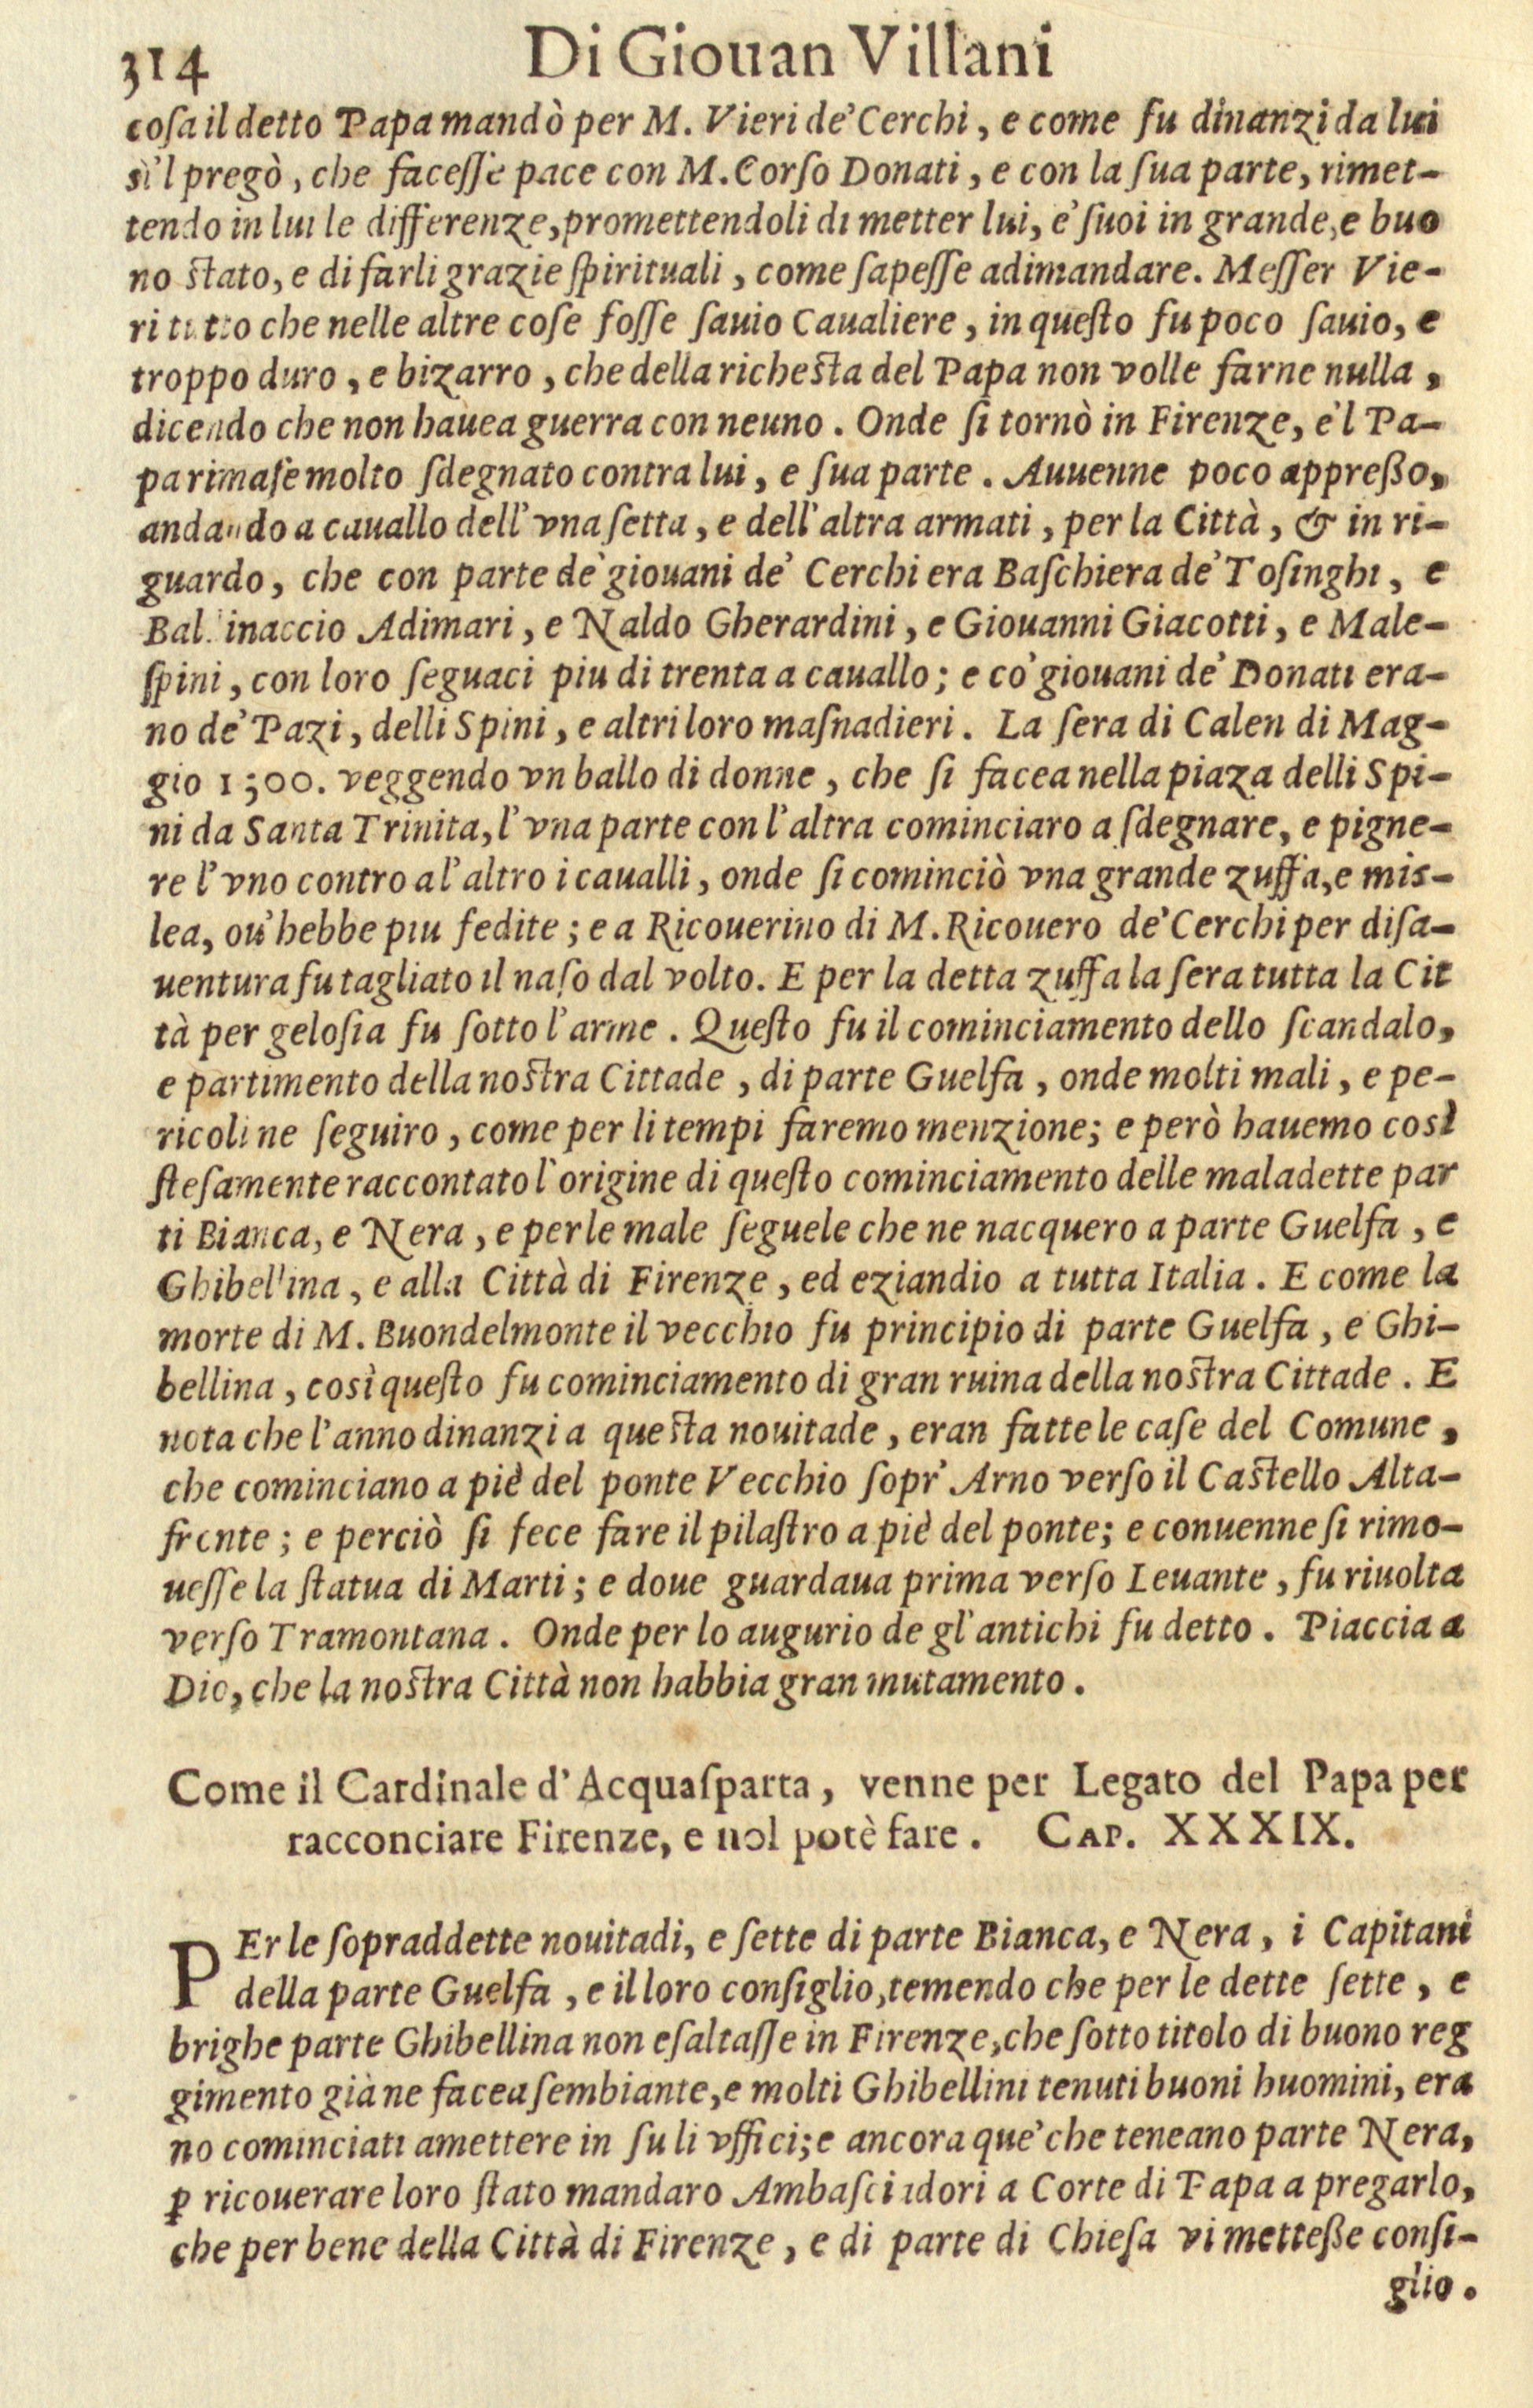 314 Di Giouan Villani
coſa il detto Papa mandò per M. Vieri de' Cerchi, e come fu dinanzi da lui
sì'l pregò, che faceſſe pace con M. Corſo Donati, e con la ſua parte, rimet-
tendo in lui le differenze, promettendoli di metter lui, e' ſuoi in grande, e buo
no ſtato, e di farli grazie ſpirituali, come ſapeſſe adimandare. Meſſer Vie-
ri tutto che nelle altre coſe foſſe ſauio Caualiere, in queſto fu poco ſauio, e
troppo duro, e bizarro, che della richeſta del Papa non volle farne nulla,
dicendo che non hauea guerra con neuno. Onde ſi tornò in Firenze, e'l Pa-
pa rimaſe molto ſdegnato contra lui, e ſua parte. Auuenne poco appreßo,
andando a cauallo dell' vna ſetta, e dell' altra armati, per la Città, & in ri-
guardo, che con parte de' giouani de' Cerchi era Baſchiera de' Toſinghi, e
Baldinaccio Adimari, e Naldo Gherardini, e Giouanni Giacotti, e Male-
ſpini, con loro ſeguaci piu di trenta a cauallo; e co' giouani de' Donati era-
no de' Pazi, delli Spini, e altri loro maſnadieri. La ſera di Calen di Mag-
gio 1300. veggendo vn ballo di donne, che ſi facea nella piaza delli Spi-
ni da Santa Trinita, l' vna parte con l' altra cominciaro a ſdegnare, e pigne-
re l' vno contro a l' altro i caualli, onde ſi cominciò vna grande zuffa, e mis-
lea, ou' hebbe piu fedite; e a Ricouerino di M. Ricouero de' Cerchi per diſa-
uentura fu tagliato il naſo dal volto. E per la detta zuffa la ſera tutta la Cit
tà per geloſia fu ſotto l' arme. Queſto fu il cominciamento dello ſcandalo,
e partimento della noſtra Cittade, di parte Guelfa, onde molti mali, e pe-
ricoli ne ſeguiro, come per li tempi faremo menzione; e però hauemo così
ſteſamente raccontato l' origine di queſto cominciamento delle maladette par
ti Bianca, e Nera, e per le male ſeguele che ne nacquero a parte Guelfa, e
Ghibellina, e alla Città di Firenze, ed eziandio a tutta Italia. E come la
morte di M. Buondelmonte il vecchio fu principio di parte Guelfa, e Ghi-
bellina, così queſto fu cominciamento di gran ruina della noſtra Cittade. E
nota che l' anno dinanzi a queſta nouitade, eran fatte le caſe del Comune,
che cominciano a piè del ponte Vecchio ſopr' Arno verſo il Caſtello Alta-
frente; e perciò ſi fece fare il pilaſtro a piè del ponte; e conuenne ſi rimo-
ueſſe la ſtatua di Marti; e doue guardaua prima verſo Leuante, fu riuolta
verſo Tramontana. Onde per lo augurio de gl' antichi fu detto. Piaccia a
Dio, che la noſtra Città non habbia gran mutamento.
Come il Cardinale d' Acquaſparta, venne per Legato del Papa per
racconciare Firenze, e nol potè fare. CAP. XXXIX.
PEr le ſopraddette nouitadi, e ſette di parte Bianca, e Nera, i Capitani
della parte Guelfa, e il loro conſiglio, temendo che per le dette ſette, e
brighe parte Ghibellina non eſaltaſſe in Firenze, che ſotto titolo di buono reg
gimento già ne facea ſembiante, e molti Ghibellini tenuti buoni huomini, era
no cominciati amettere in ſu li vffici; e ancora que' che teneano parte Nera,
ꝑ ricouerare loro ſtato mandaro Ambaſciadori a Corte di Papa a pregarlo,
che per bene della Città di Firenze, e di parte di Chieſa vi metteße conſi-
glio.